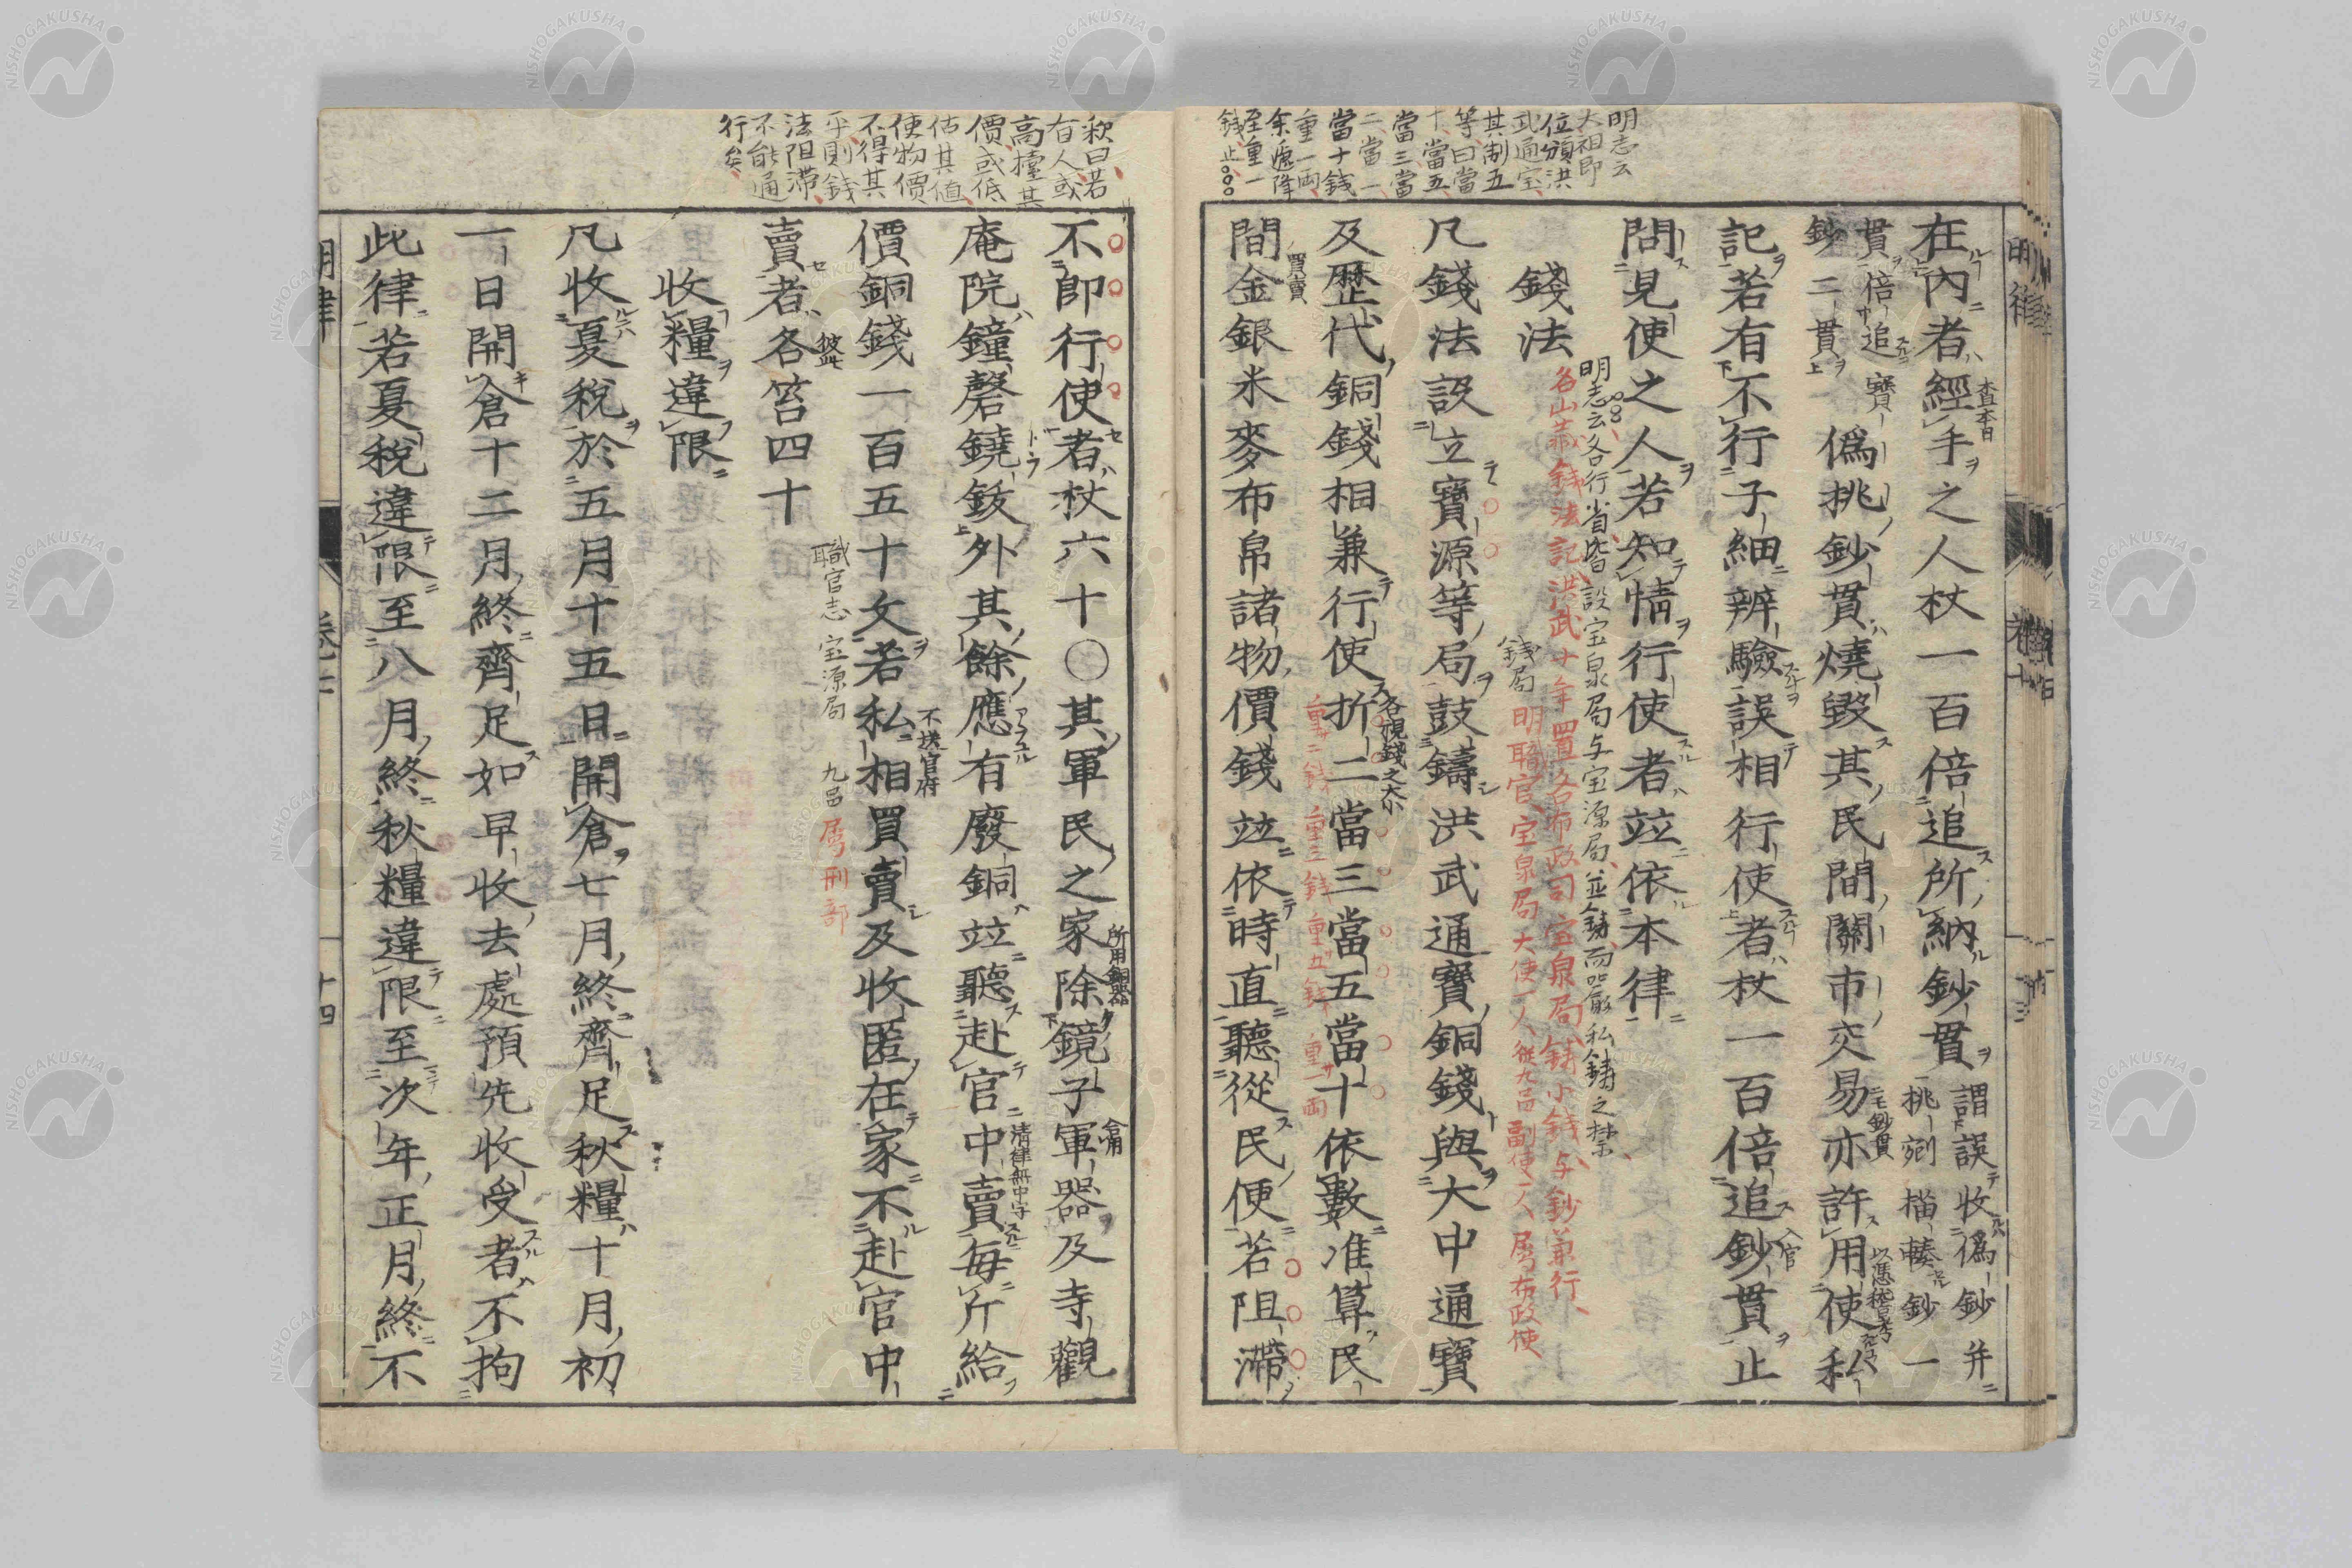 明志云
大祖即
位頒洪
武通宝
其制五
等曰當
十當五
當三當
二當一
當十錢
重一兩
余遞降
至重一
錢止
在內者經手之人杖一百倍追所納鈔貫
謂誤收偽鈔并
挑剜描輳鈔一
貫倍追寶
鈔二貫
偽挑鈔貫燒毀其民間關市交易亦許用使私
記若有不行子細辨驗誤相行使者杖一百倍追鈔貫止
問見使之人若知情行使者竝依本律
明志云各行省皆設宝泉局与宝源局並鑄而嚴私鑄之禁
錢法
錢法記洪武十年置各布政司宝泉局鑄小錢与鈔兼行
錢局明職官宝泉局大使一人從九品副使一人属布政使
凡錢法設立寶源等局鼓鑄洪武通寶銅錢與大中通寶
及歷代銅錢相兼行使折二當三當五當十依數准算民
各視錢之大小
重二錢重三錢重五錢重一兩
間金銀米麥布帛諸物價錢竝依時直聽從民便若阻滯
買賣
釈曰若
有人或
高擡其
價或低
估其值
使物價
不得其
平則錢
法阻滞
不能通
行矣
不即行使者杖六十○其軍民之家除鏡子軍器及寺觀
所用銅器
庵院鐘磬鐃鈸外其餘應有廢銅竝聽赴官中賣每斤給
清律無中字
價銅錢一百五十文若私相買賣及收匿在家不赴官中
不送官府
賣者各笞四十
彼此
職官志 宝源局 九品属刑部
收糧違限
凡收夏稅於五月十五日開倉七月終齊足秋糧十月初
一日開倉十二月終齊足如早收去處預先收受者不拘
此律若夏稅違限至八月終秋糧違限至次年正月終不
明律
十四